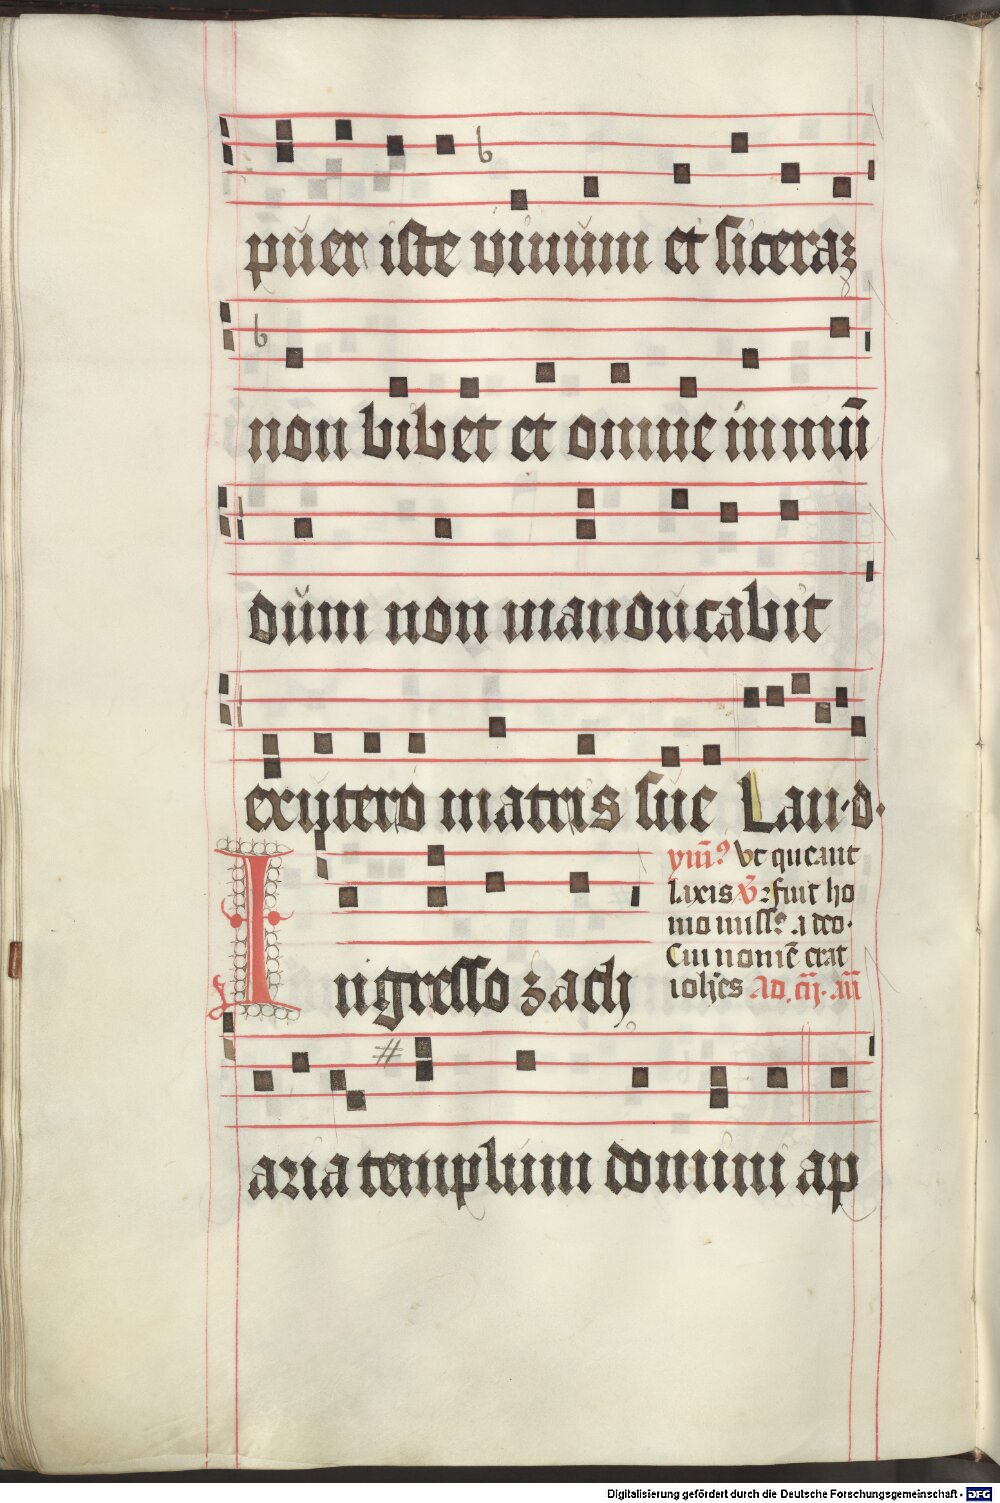 puer iste vinum et siceraz
non bibet et omne inmū
dum non manducabit
ex utero matris sue Lau·d·
ymꝰ Vt queant
laxis v̄ fuit ho
mo missꝰ a deo·
Cui nomē erat
ioh̄es Ad
Ingresso zach
aria templum domini ap
Digitalisierung gefördert durch die Deutsche Forschungsgemeinschaft - DFG